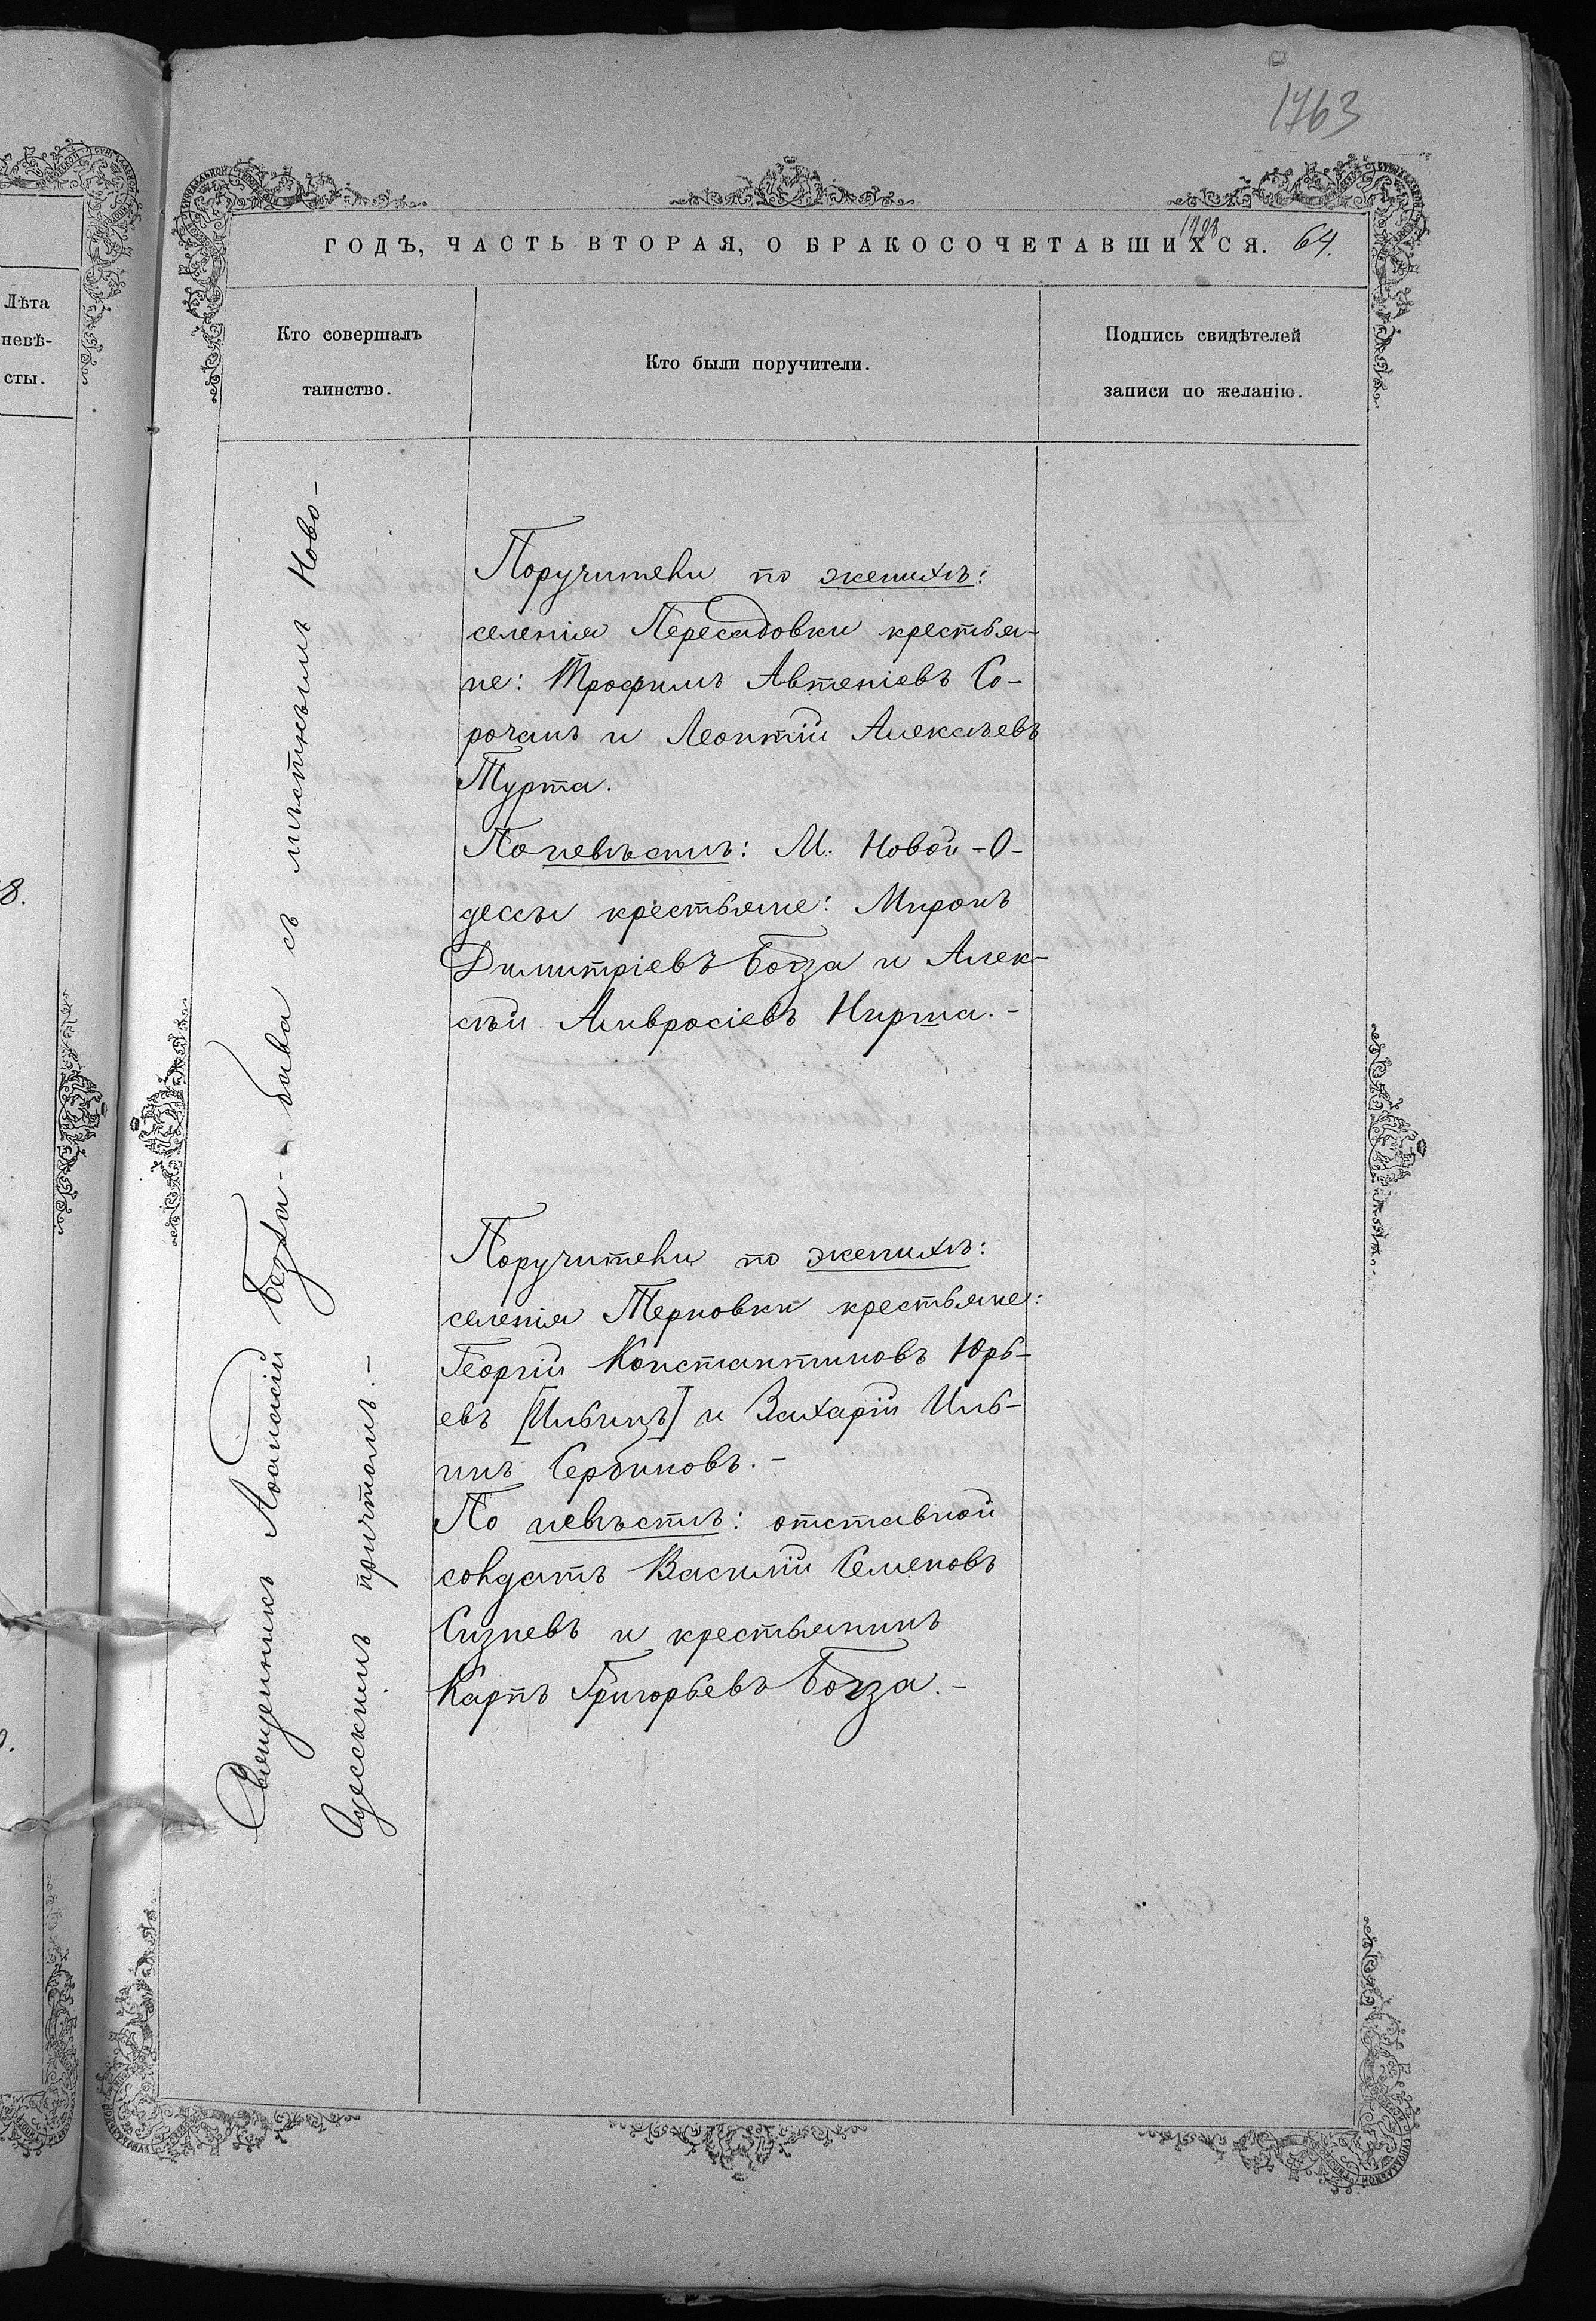 1763
ГОДЪ, ЧАСТЬ ВТОРАЯ, О БРАКОСОЧЕТАВШИХСЯ. 64.
Лѣта
невѣ-
сты.
Кто совершалъ
таинство.
Кто были поручители.
Подпись свидѣтелей
записи по желанію.
Священникъ Аѳанасій с мѣстнымъ Ново-
Одесскимъ причтомъ.-
Поручители по женихѣ:
селенія Пересадовки крестья-
не: Трофимъ Автеніевъ Со-
рочанъ и Леонтій Алексѣевъ
Турта.
По невѣстѣ: М. Новой-О-
дессы крестьяне: Миронъ
Димитріевъ Богза и Алек-
сѣй Амвросіевъ Нирша.-
Поручители по женихѣ:
селенія Терновки крестьяне:
Георгій Константиновъ Юрь-
евъ [Ильинъ] и Захарій Иль-
инъ Сербиновъ.-
По невѣстѣ: отставной
солдатъ Василій Семеновъ
Сизневъ и крестьянинъ
Карпъ Григорьевъ Богза.-
8.